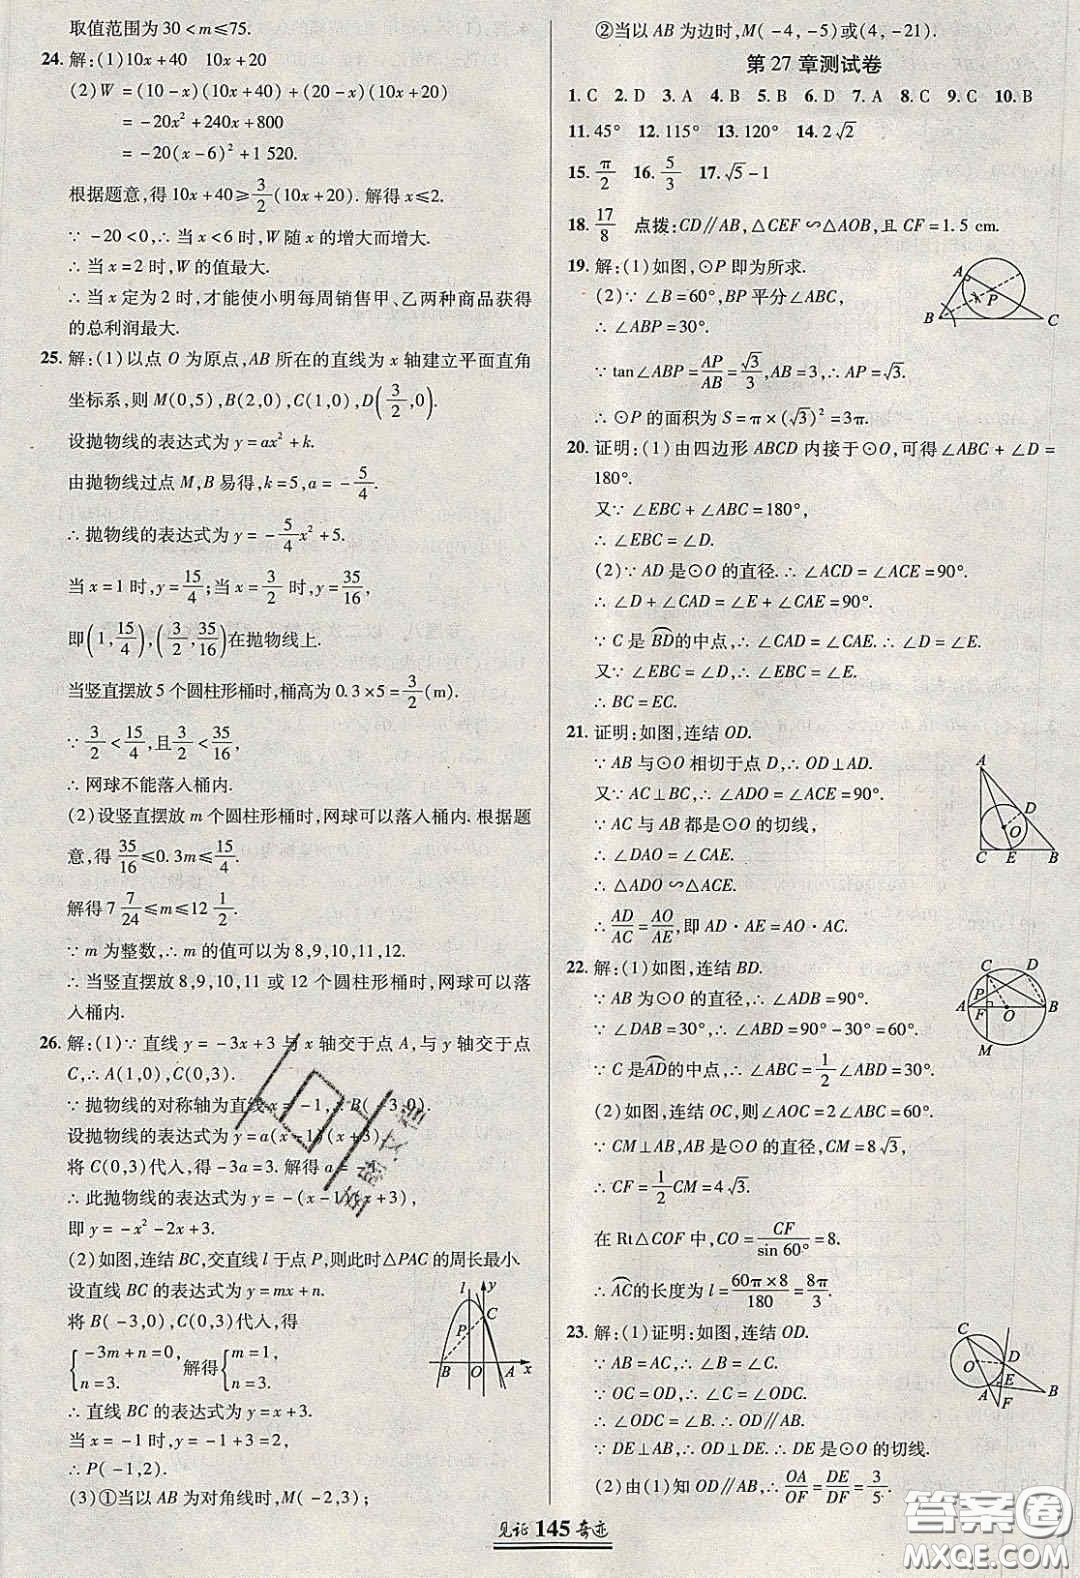 取值范围为30<m≤75.
24. 解:(1)10x+40　10x+20
(2)W=(10-x)(10x+40)+(20-x)(10x+20)
=-20x²+240x+800
=-20(x-6)²+1 520.
根据题意,得10x+40≥3/2(10x+20). 解得x≤2.
∵-20<0,∴当x<6时,W随x的增大而增大.
∴当x=2时,W的值最大.
∴当x定为2时,才能使小明每周销售甲、乙两种商品获得
的总利润最大.
25. 解:(1)以点O为原点,AB所在的直线为x轴建立平面直角
坐标系,则M(0,5),B(2,0),C(1,0),D(3/2,0).
设抛物线的表达式为y=ax²+k.
由抛物线过点M,B易得,k=5,a=-5/4.
∴抛物线的表达式为y=-5/4x²+5.
当x=1时,y=15/4;当x=3/2时,y=35/16,
即(1,15/4),(3/2,35/16)在抛物线上.
当竖直摆放5个圆柱形桶时,桶高为0.3×5=3/2(m).
∵3/2<15/4,且3/2<35/16,
∴网球不能落入桶内.
(2)设竖直摆放m个圆柱形桶时,网球可以落入桶内. 根据题
意,得35/16≤0.3m≤15/4.
解得7 7/24≤m≤12 1/2.
∵m为整数,∴m的值可以为8,9,10,11,12.
∴当竖直摆放8,9,10,11或12个圆柱形桶时,网球可以落
入桶内.
26. 解:(1)∵直线y=-3x+3与x轴交于点A,与y轴交于点
C,∴A(1,0),C(0,3).
∵抛物线的对称轴为直线x=-1,∴B(-3,0).
设抛物线的表达式为y=a(x-1)(x+3),
将C(0,3)代入,得-3a=3. 解得a=-1.
∴此抛物线的表达式为y=-(x-1)(x+3),
即y=-x²-2x+3.
(2)如图,连结BC,交直线l于点P,则此时△PAC的周长最小.
设直线BC的表达式为y=mx+n.
将B(-3,0),C(0,3)代入,得
{-3m+n=0, n=3. 解得{m=1, n=3.
∴直线BC的表达式为y=x+3.
当x=-1时,y=2,
∴P(-1,2).
(3)①当以AB为对角线时,M(-2,3);
l y C P B O A x
②当以AB为边时,M(-4,-5)或(4,-21).
第27章测试卷
1. C　2. D　3. A　4. B　5. B　6. D　7. A　8. C　9. C　10. B
11. 45°　12. 115°　13. 120°　14. 2√2
15. π/2　16. 5/3　17. √5-1
18. 17/8　点拨:CD∥AB,△CEF∽△AOB,且CF=1.5 cm.
19. 解:(1)如图,⊙P即为所求.
(2)∵∠B=60°,BP平分∠ABC,
∴∠ABP=30°.
∵tan∠ABP=AP/AB=√3/3,AB=3,∴AP=√3.
∴⊙P的面积为S=π×(√3)²=3π.
A P B C
20. 证明:(1)由四边形ABCD内接于⊙O,可得∠ABC+∠D=
180°.
又∵∠EBC+∠ABC=180°,
∴∠EBC=∠D.
(2)∵AD是⊙O的直径.∴∠ACD=∠ACE=90°.
∴∠D+∠CAD=∠E+∠CAE=90°.
∵C是BD⌒的中点,∴∠CAD=∠CAE.∴∠D=∠E.
又∵∠EBC=∠D,∴∠E=∠EBC.
∴BC=EC.
21. 证明:如图,连结OD.
∵AB与⊙O相切于点D,∴OD⊥AD.
又∵AC⊥BC,∴∠ADO=∠ACE=90°.
∵AC与AB都是⊙O的切线,
∴∠DAO=∠CAE.
∴△ADO∽△ACE.
∴AD/AC=AO/AE,即AD·AE=AO·AC.
A D O C E B
22. 解:(1)如图,连结BD.
∵AB为⊙O的直径,∴∠ADB=90°.
∵∠DAB=30°,∴∠ABD=90°-30°=60°.
∵C是AD⌒的中点,∴∠ABC=1/2∠ABD=30°.
(2)如图,连结OC,则∠AOC=2∠ABC=60°.
∵CM⊥AB,AB是⊙O的直径,CM=8√3,
∴CF=1/2CM=4√3.
在Rt△COF中,CO=CF/sin 60°=8.
∴AC⌒的长度为l=60π×8/180=8π/3.
C D P A F O B M
23. 解:(1)证明:如图,连结OD.
∵AB=AC,∴∠B=∠C.
∵OC=OD,∴∠C=∠ODC.
∴∠ODC=∠B.∴OD∥AB.
∵DE⊥AB,∴OD⊥DE.∴DE是⊙O的切线.
(2)由(1)知OD∥AB,∴OA/OF=DE/DF=3/5.
C O D E A F B
见证145奇迹
答案圈
MXQE.COM